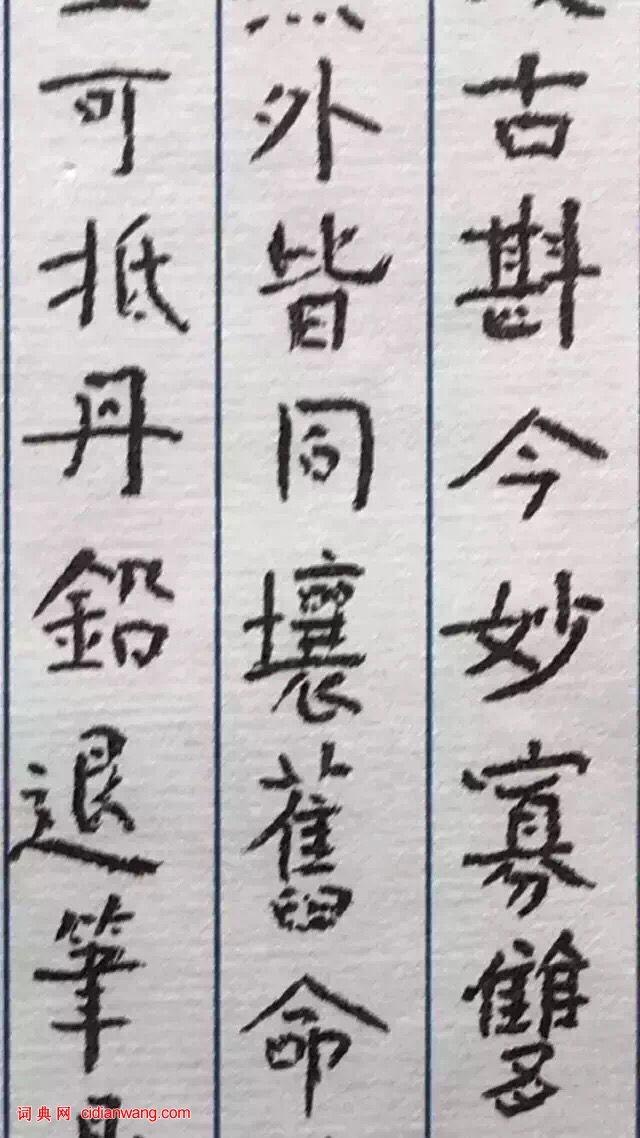 古斟今妙寡雙
外皆同壤舊命
可抵丹鉛退筆
词典网 cidianwang.com